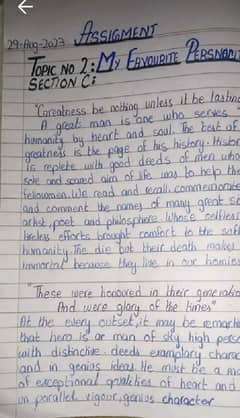 29-Aug-2023 ASSIGMENT
TOPIC NO 2: MY FAVOURITE
SECTION C:
"Greatness be nothing unless it be lasting
A great man is one who serves
humanity by heart and soul. The best of
greatness is the page of his history. Histor
is replete with good deeds of men who
sole and sacred aim of life was to help the
fellowmen. We read and recall, commemorate
and comment the names of many great
artist, poet and philosphere. Whose selfless
tireless efforts brought comfort to the
humanity. The die but their death makes
immortal because they live in our
"These were honoured in their generatio
And were glory of the times"
At the every outset, it may be remark
that hero is ar man of sky high perso
with distinctive deeds exemplary charac
and in genius ideas. He must be a ma
of exceptional qualities of heart and
un paralled vigour, genius character